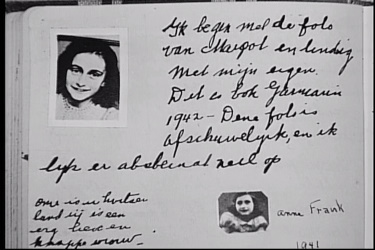 Ik begin met de foto
van Margot en eindig
met mijn eigen.
Dit is ook Januari
1942 – Deze foto is
afschuwelijk, en ik
lijk er absoluut niet op
oma is in
land zij is een
erg lieve en
knappe vrouw –
anne Frank
1941